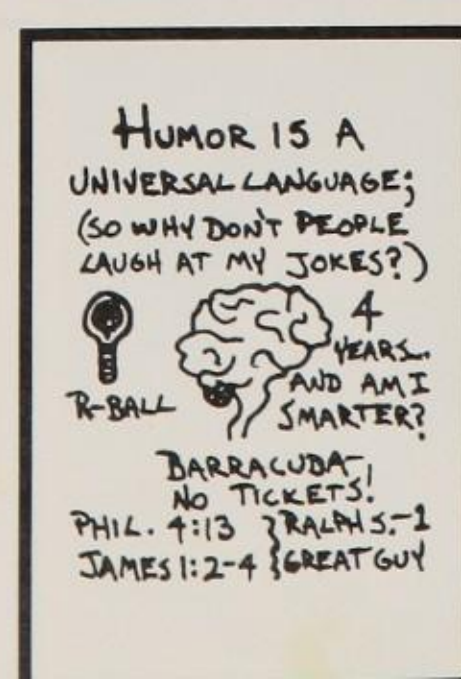 HUMOR IS A
UNIVERSAL LANGUAGE;
(SO WHY DON'T PEOPLE
LAUGH AT MY JOKES?)
4
YEARS.
AND AM I
SMARTER?
R-BALL
BARRACUDA-
NO TICKETS!
PHIL. 4:13 } RALPH S.-1
JAMES 1:2-4 } GREAT GUY